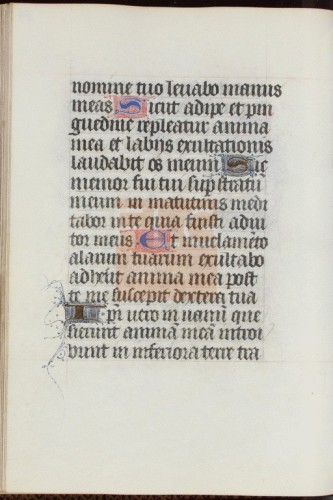 nomine tuo levabo manus
meas Sicut adipe et pin
guedine repleatur anima
mea et labijs exultationis
laudabit os meum Sic
memor fui tui sup stratū
meum in matutinis medi
tabor in te quia fuisti adiu
tor meus Et in velamēto
alarum tuarum exultabo
adhesit anima mea post
te me suscepit dextera tua
Ipī vero in vanū que
sierunt animā meā introi
bunt in inferiora terre tra